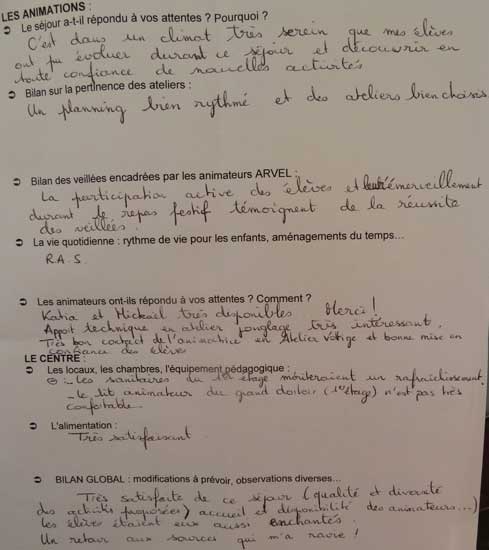 LES ANIMATIONS :
➲ Le séjour a-t-il répondu à vos attentes ? Pourquoi ?
C'est dans un climat très serein que mes élèves
ont pu évoluer durant ce séjour et découvrir en
toute confiance de nouvelles activités
➲ Bilan sur la pertinence des ateliers :
Un planning bien rythmé et des ateliers bien choisis
➲ Bilan des veillées encadrées par les animateurs ARVEL :
La participation active des élèves et émerveillement
durant le repas festif témoignent de la réussite
des veillées.
➲ La vie quotidienne : rythme de vie pour les enfants, aménagements du temps…
R.A.S.
➲ Les animateurs ont-ils répondu à vos attentes ? Comment ?
Katia et Mickaïl très disponibles Merci !
Apport technique en atelier jonglage très intéressant.
Très bon contact de l'animatrice en Atelier Voltige et bonne mise en
confiance des élèves
LE CENTRE :
➲ Les locaux, les chambres, l'équipement pédagogique :
☹ : - Les sanitaires du 1er étage mériteraient un rafraîchissement.
- le lit animateur du grand dortoir (1er étage) n'est pas très
confortable.
➲ L'alimentation :
Très satisfaisant
➲ BILAN GLOBAL : modifications à prévoir, observations diverses…
Très satisfaite de ce séjour (qualité et diversité
des activités proposées) accueil et disponibilité des animateurs...)
Les élèves étaient eux aussi enchantés.
Un retour aux sources qui m'a ravie !